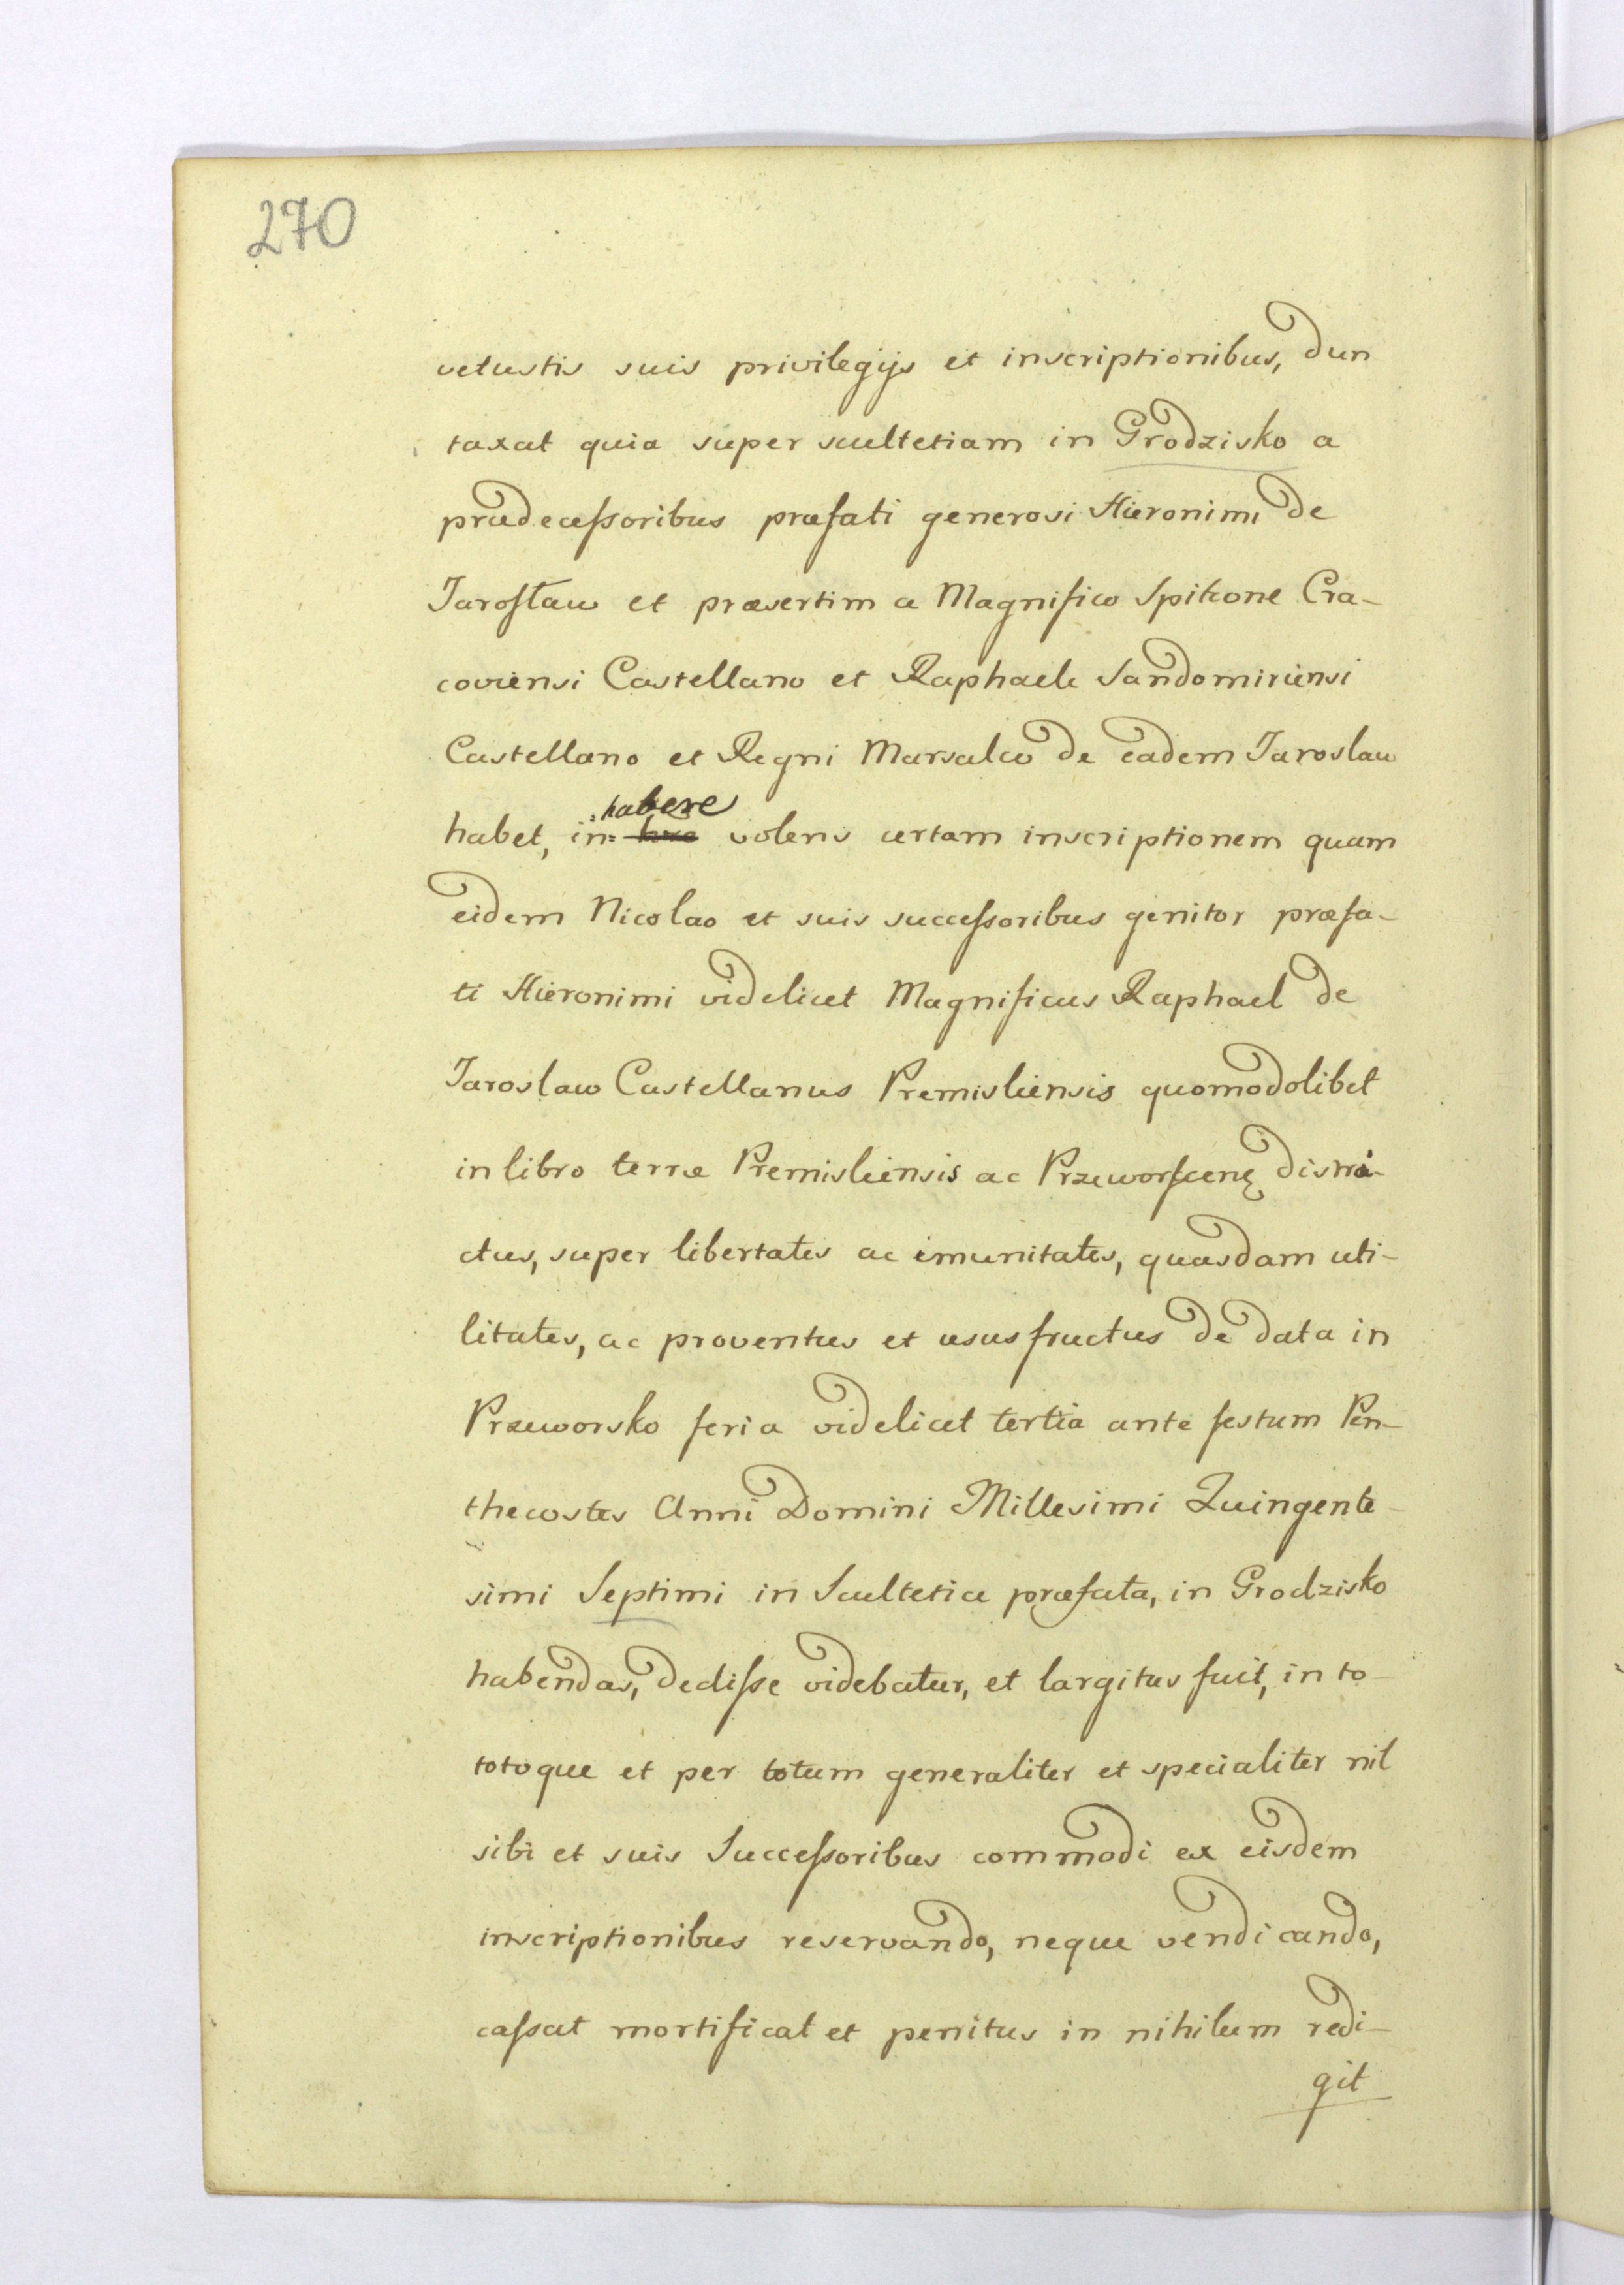 270
vetustis suis privilegijs et inscriptionibus, dun
taxat quia super scultetiam in Grodzisko a
prædecessoribus præfati generosi Hieronimi de
Jarosław et præsertim a Magnifico Spitcone Cra-
coviensi Castellano et Raphaele Sandomiriensi
Castellano et Regni Marsalco de eadem Jaroslaw
habere
habet, in: hre volens certam inscriptionem quam
eidem Nicolao et suis successoribus genitor præfa-
ti Hieronimi videlicet Magnificus Raphael de
Jaroslaw Castellanus Premisliensis quomodolibet
in libro terræ Premisliensis ac Przeworscenę distri-
ctus, super libertates ac imunitates, quasdam uti-
litates, ac proventus et usus fructus de data in
Przeworsko feria videlicet tertia ante festum Pen-
thecostes Anni Domini Millesimi Quingente-
simi Septimi in Scultetia præfata, in Grodzisko
habendas, dedisse videbatur, et largitus fuit, in to-
totoque et per totum generaliter et specialiter nil
sibi et suis Successoribus commodi ex eisdem
inscriptionibus reservando, neque vendicando,
cassat mortificat et penitus in nihilum redi-
git